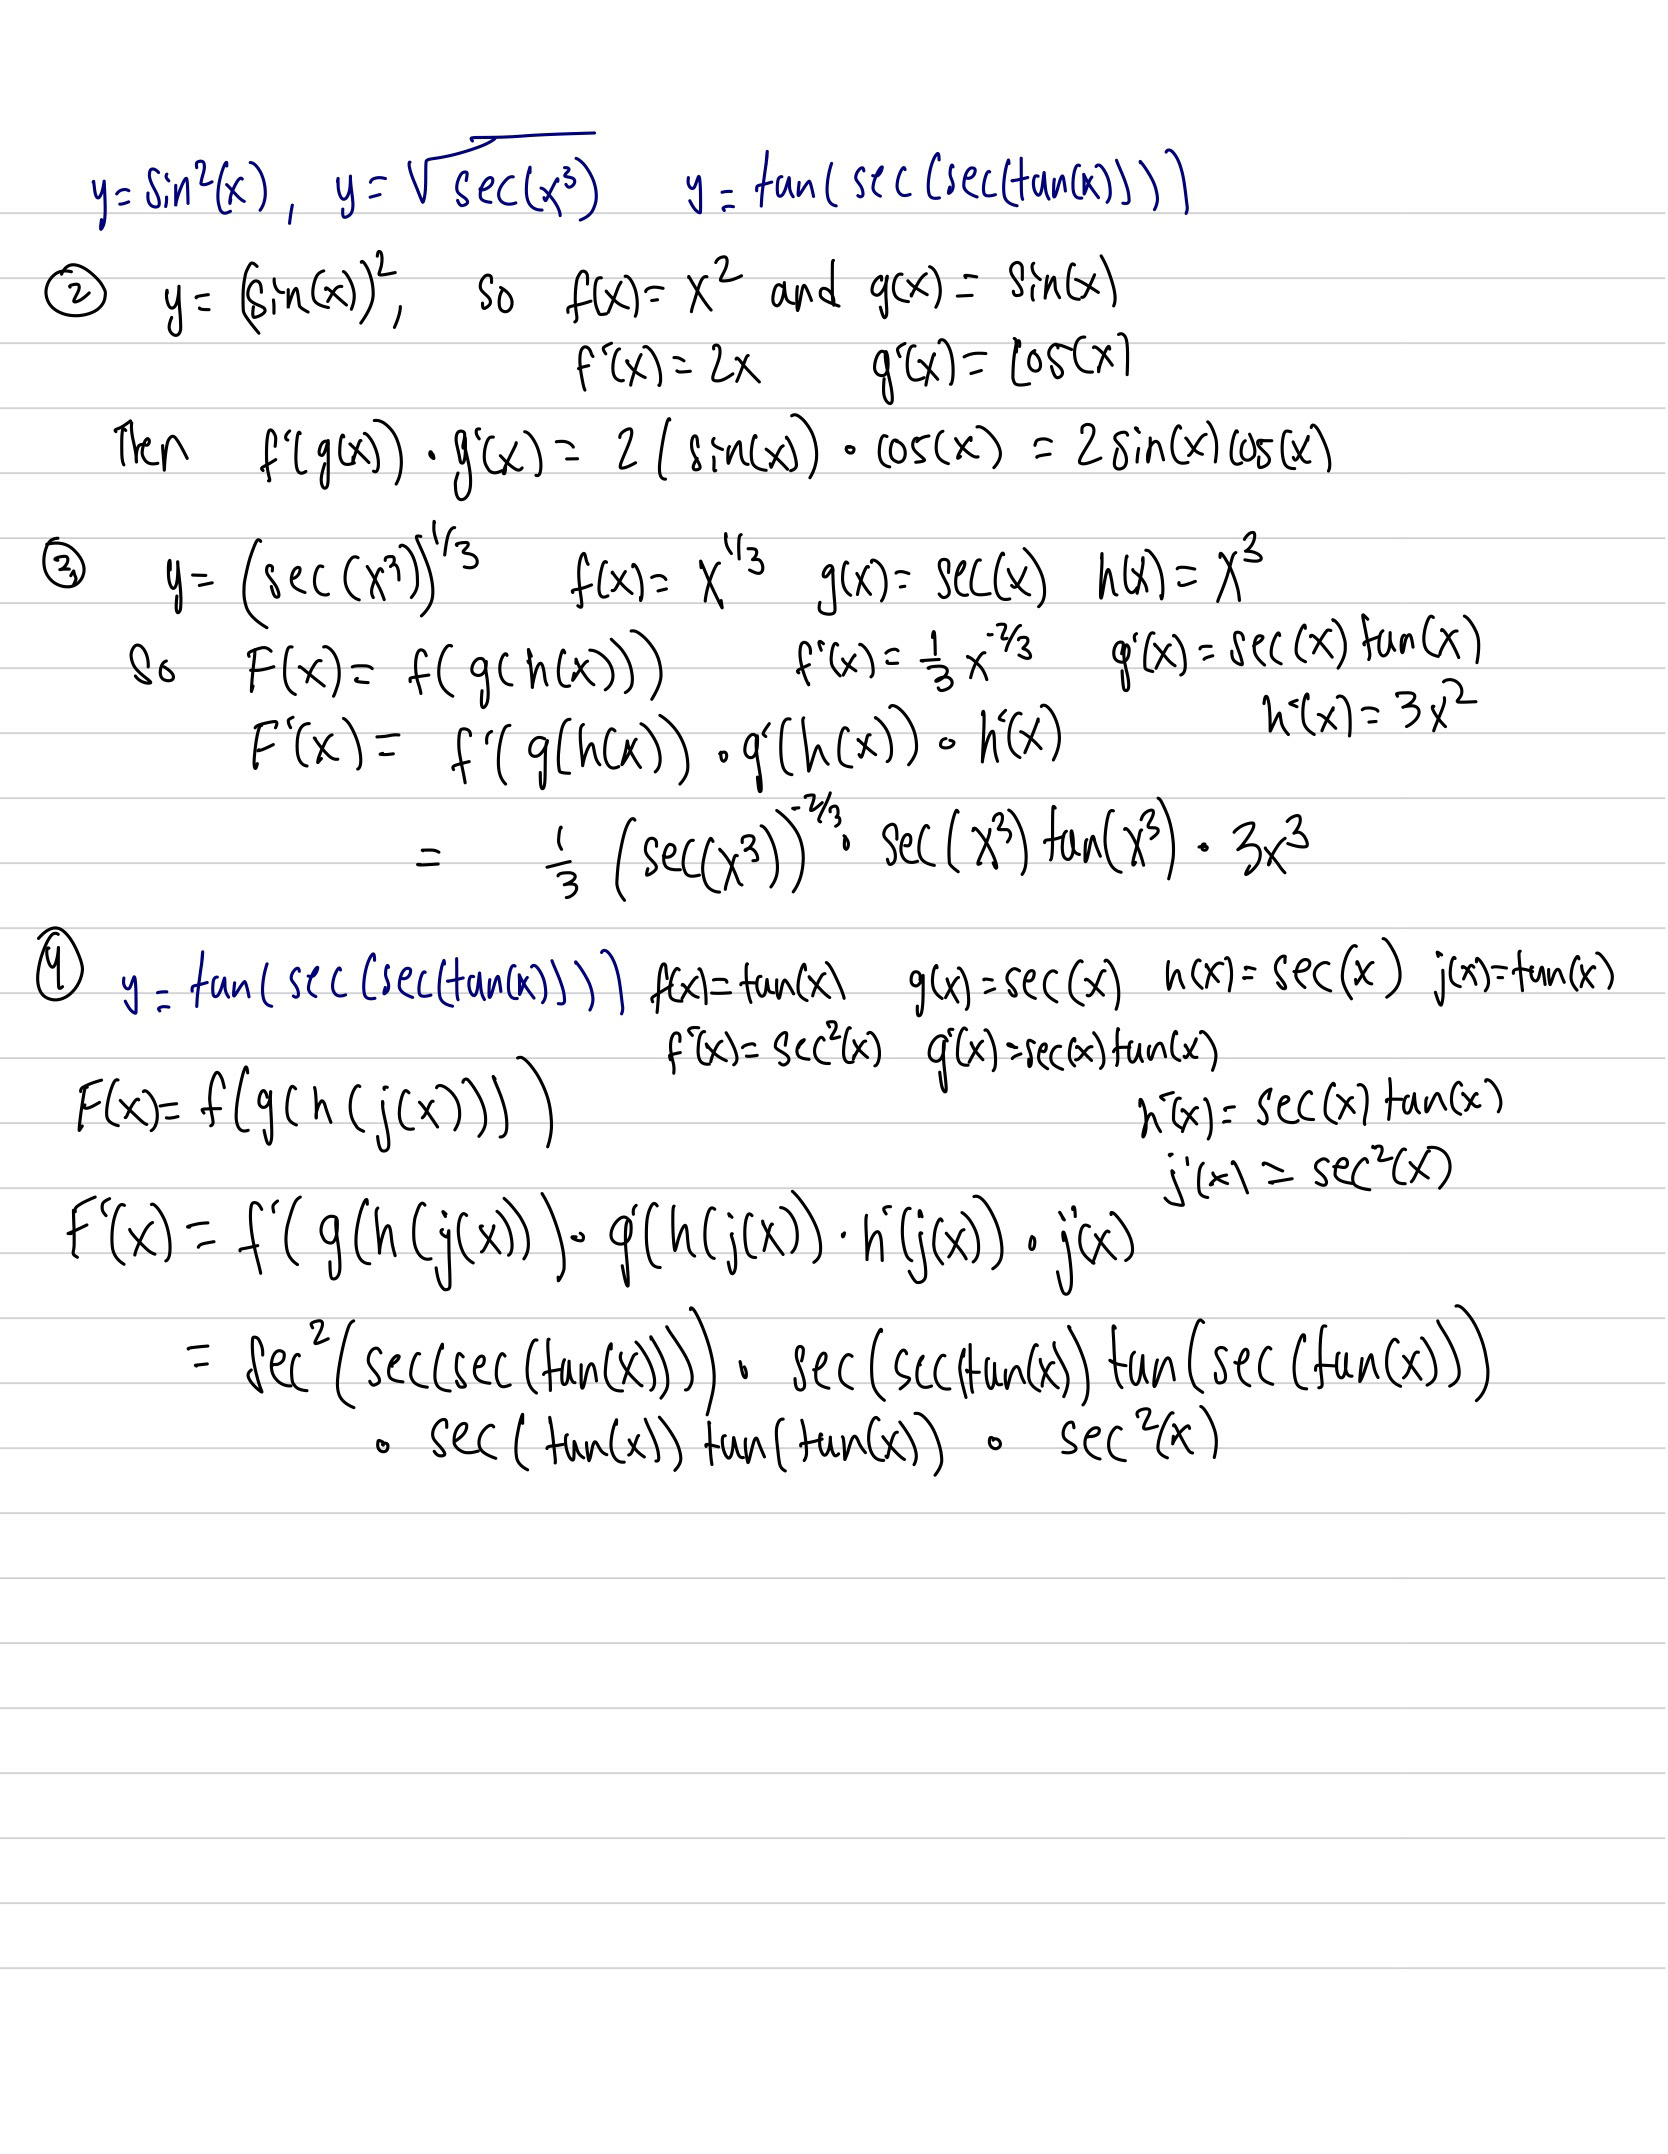 y = sin²(x), y = √sec(x³) y = tan(sec(sec(tan(x))))
② y = (sin(x))², so f(x) = x² and g(x) = sin(x)
f'(x) = 2x g'(x) = cos(x)
Then f'(g(x)) · g'(x) = 2(sin(x)) · cos(x) = 2sin(x)cos(x)
③ y = (sec(x³))^1/3 f(x) = x^1/3 g(x) = sec(x) h(x) = x³
So F(x) = f(g(h(x))) f'(x) = 1/3 x^-2/3 g'(x) = sec(x)tan(x)
h'(x) = 3x²
F'(x) = f'(g(h(x)) · g'(h(x)) · h'(x)
= 1/3 (sec(x³))^-2/3 · sec(x³)tan(x³) · 3x³
④ y = tan(sec(sec(tan(x)))) f(x) = tan(x) g(x) = sec(x) h(x) = sec(x) j(x) = tan(x)
f'(x) = sec²(x) g'(x) = sec(x)tan(x)
F(x) = f(g(h(j(x)))) h'(x) = sec(x)tan(x)
j'(x) = sec²(x)
F'(x) = f'(g(h(j(x))) · g'(h(j(x)) · h'(j(x)) · j'(x)
= sec²(sec(sec(tan(x)))) · sec(sec(tan(x)) tan(sec(tan(x)))
· sec(tan(x)) tan(tan(x)) · sec²(x)